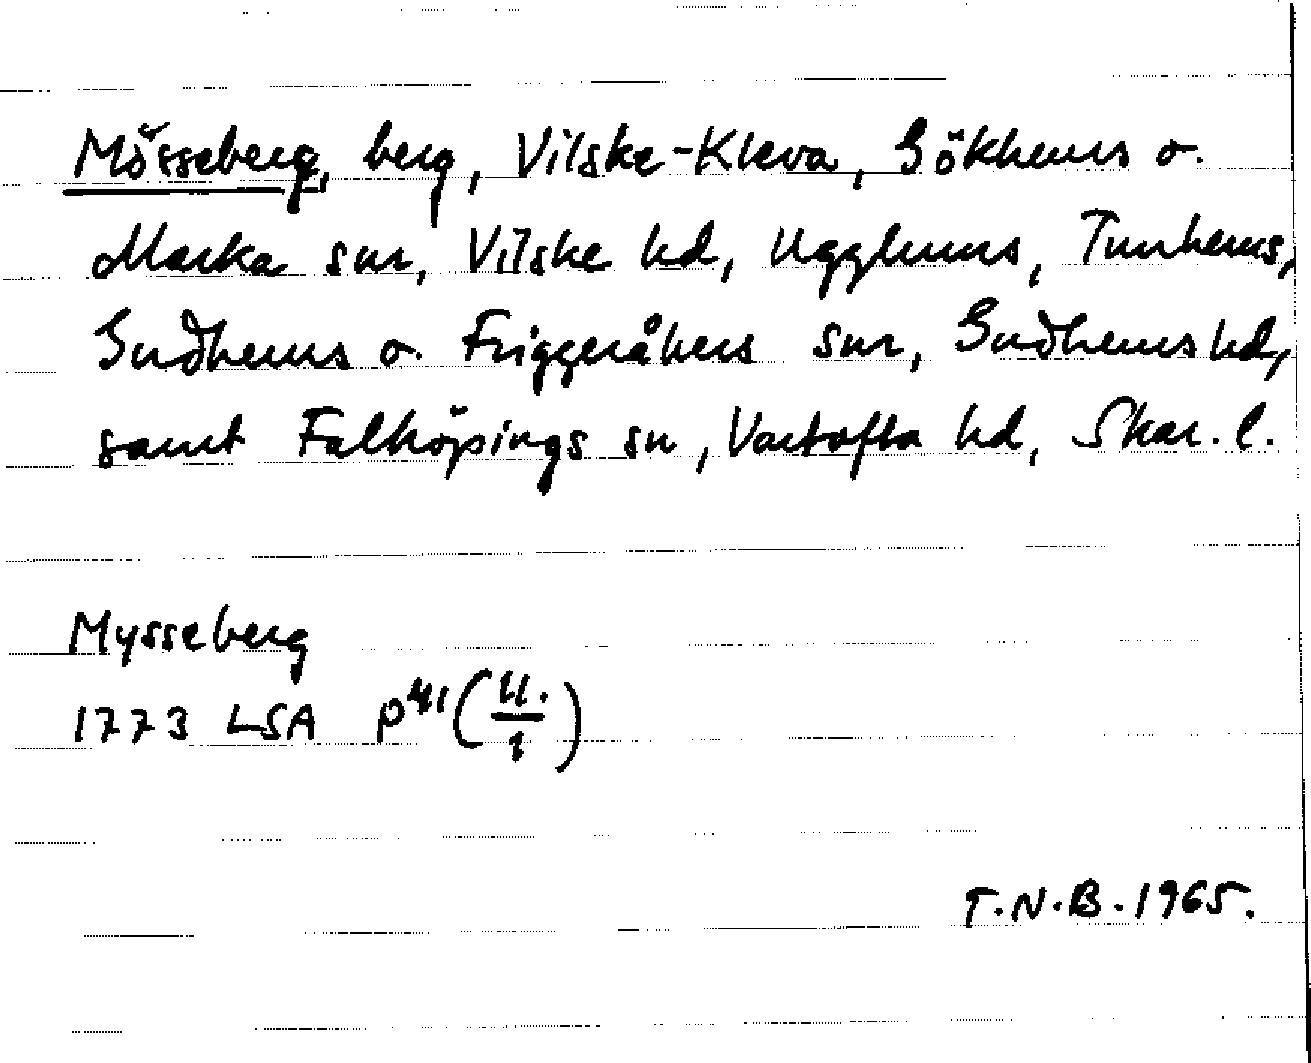 Mösseberg, berg, Vilske-Kleva, Gökhems o.
Marka snr, Vilske hd, Ugglums, Torrhems,
Gudhems o. Friggeråkers snr, Gudhems hd,
samt Falköpings sn, Vartofta hd, Skar. l.
Mysseberg
1773 LSA P41 (U./1)
T.N.B. 1965.